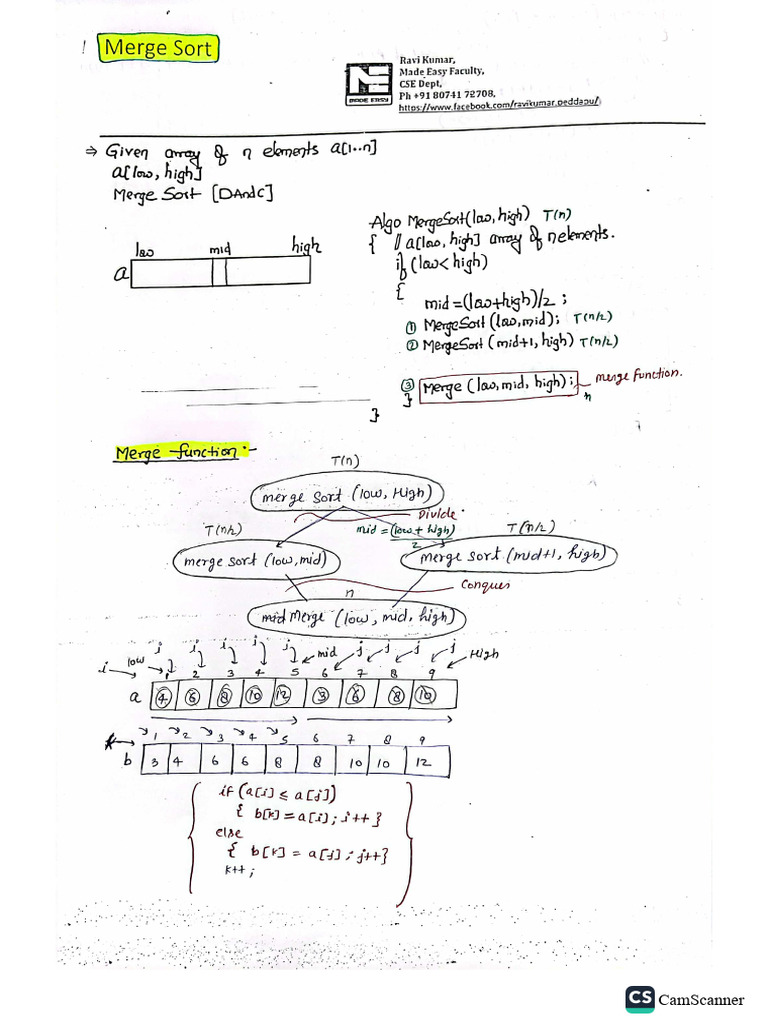 1 Merge Sort
Ravi Kumar,
Made Easy Faculty,
CSE Dept,
Ph +91 80741 72708,
https://www.facebook.com/ravikumar.peddapu/
MADE EASY
⇒ Given array of n elements a[1..n]
a[low, high]
Merge Sort [DAndC]
Algo MergeSort(low, high) T(n)
{ // a[low, high] array of n elements.
if (low < high)
{
mid = (low+high)/2 ;
① MergeSort (low, mid); T(n/2)
② MergeSort (mid+1, high) T(n/2)
③ Merge (low, mid, high); merge function.
} n
}
low mid high
a
Merge function:-
T(n)
merge sort (low, High)
Divide.
T(n/2) mid = (low + high)/2 T(n/2)
merge sort (low, mid) merge sort (mid+1, high)
n Conques
mid Merge (low, mid, high)
j j j j j mid j j j j High
i low 1 2 3 4 5 6 7 8 9
a 4 6 8 10 12 3 6 8 10
k 1 2 3 4 5 6 7 8 9
b 3 4 6 6 8 8 10 10 12
if (a[i] ≤ a[j])
{ b[k] = a[i]; i++ }
else
{ b[k] = a[j]; j++}
k++;
CS CamScanner